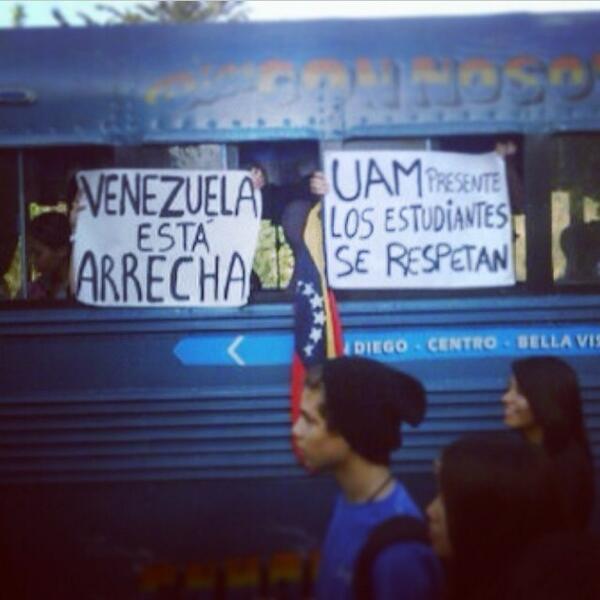 CON NOSO
VENEZUELA
ESTÁ
ARRECHA
UAM PRESENTE
LOS ESTUDIANTES
SE RESPETAN
DIEGO - CENTRO - BELLA VIS